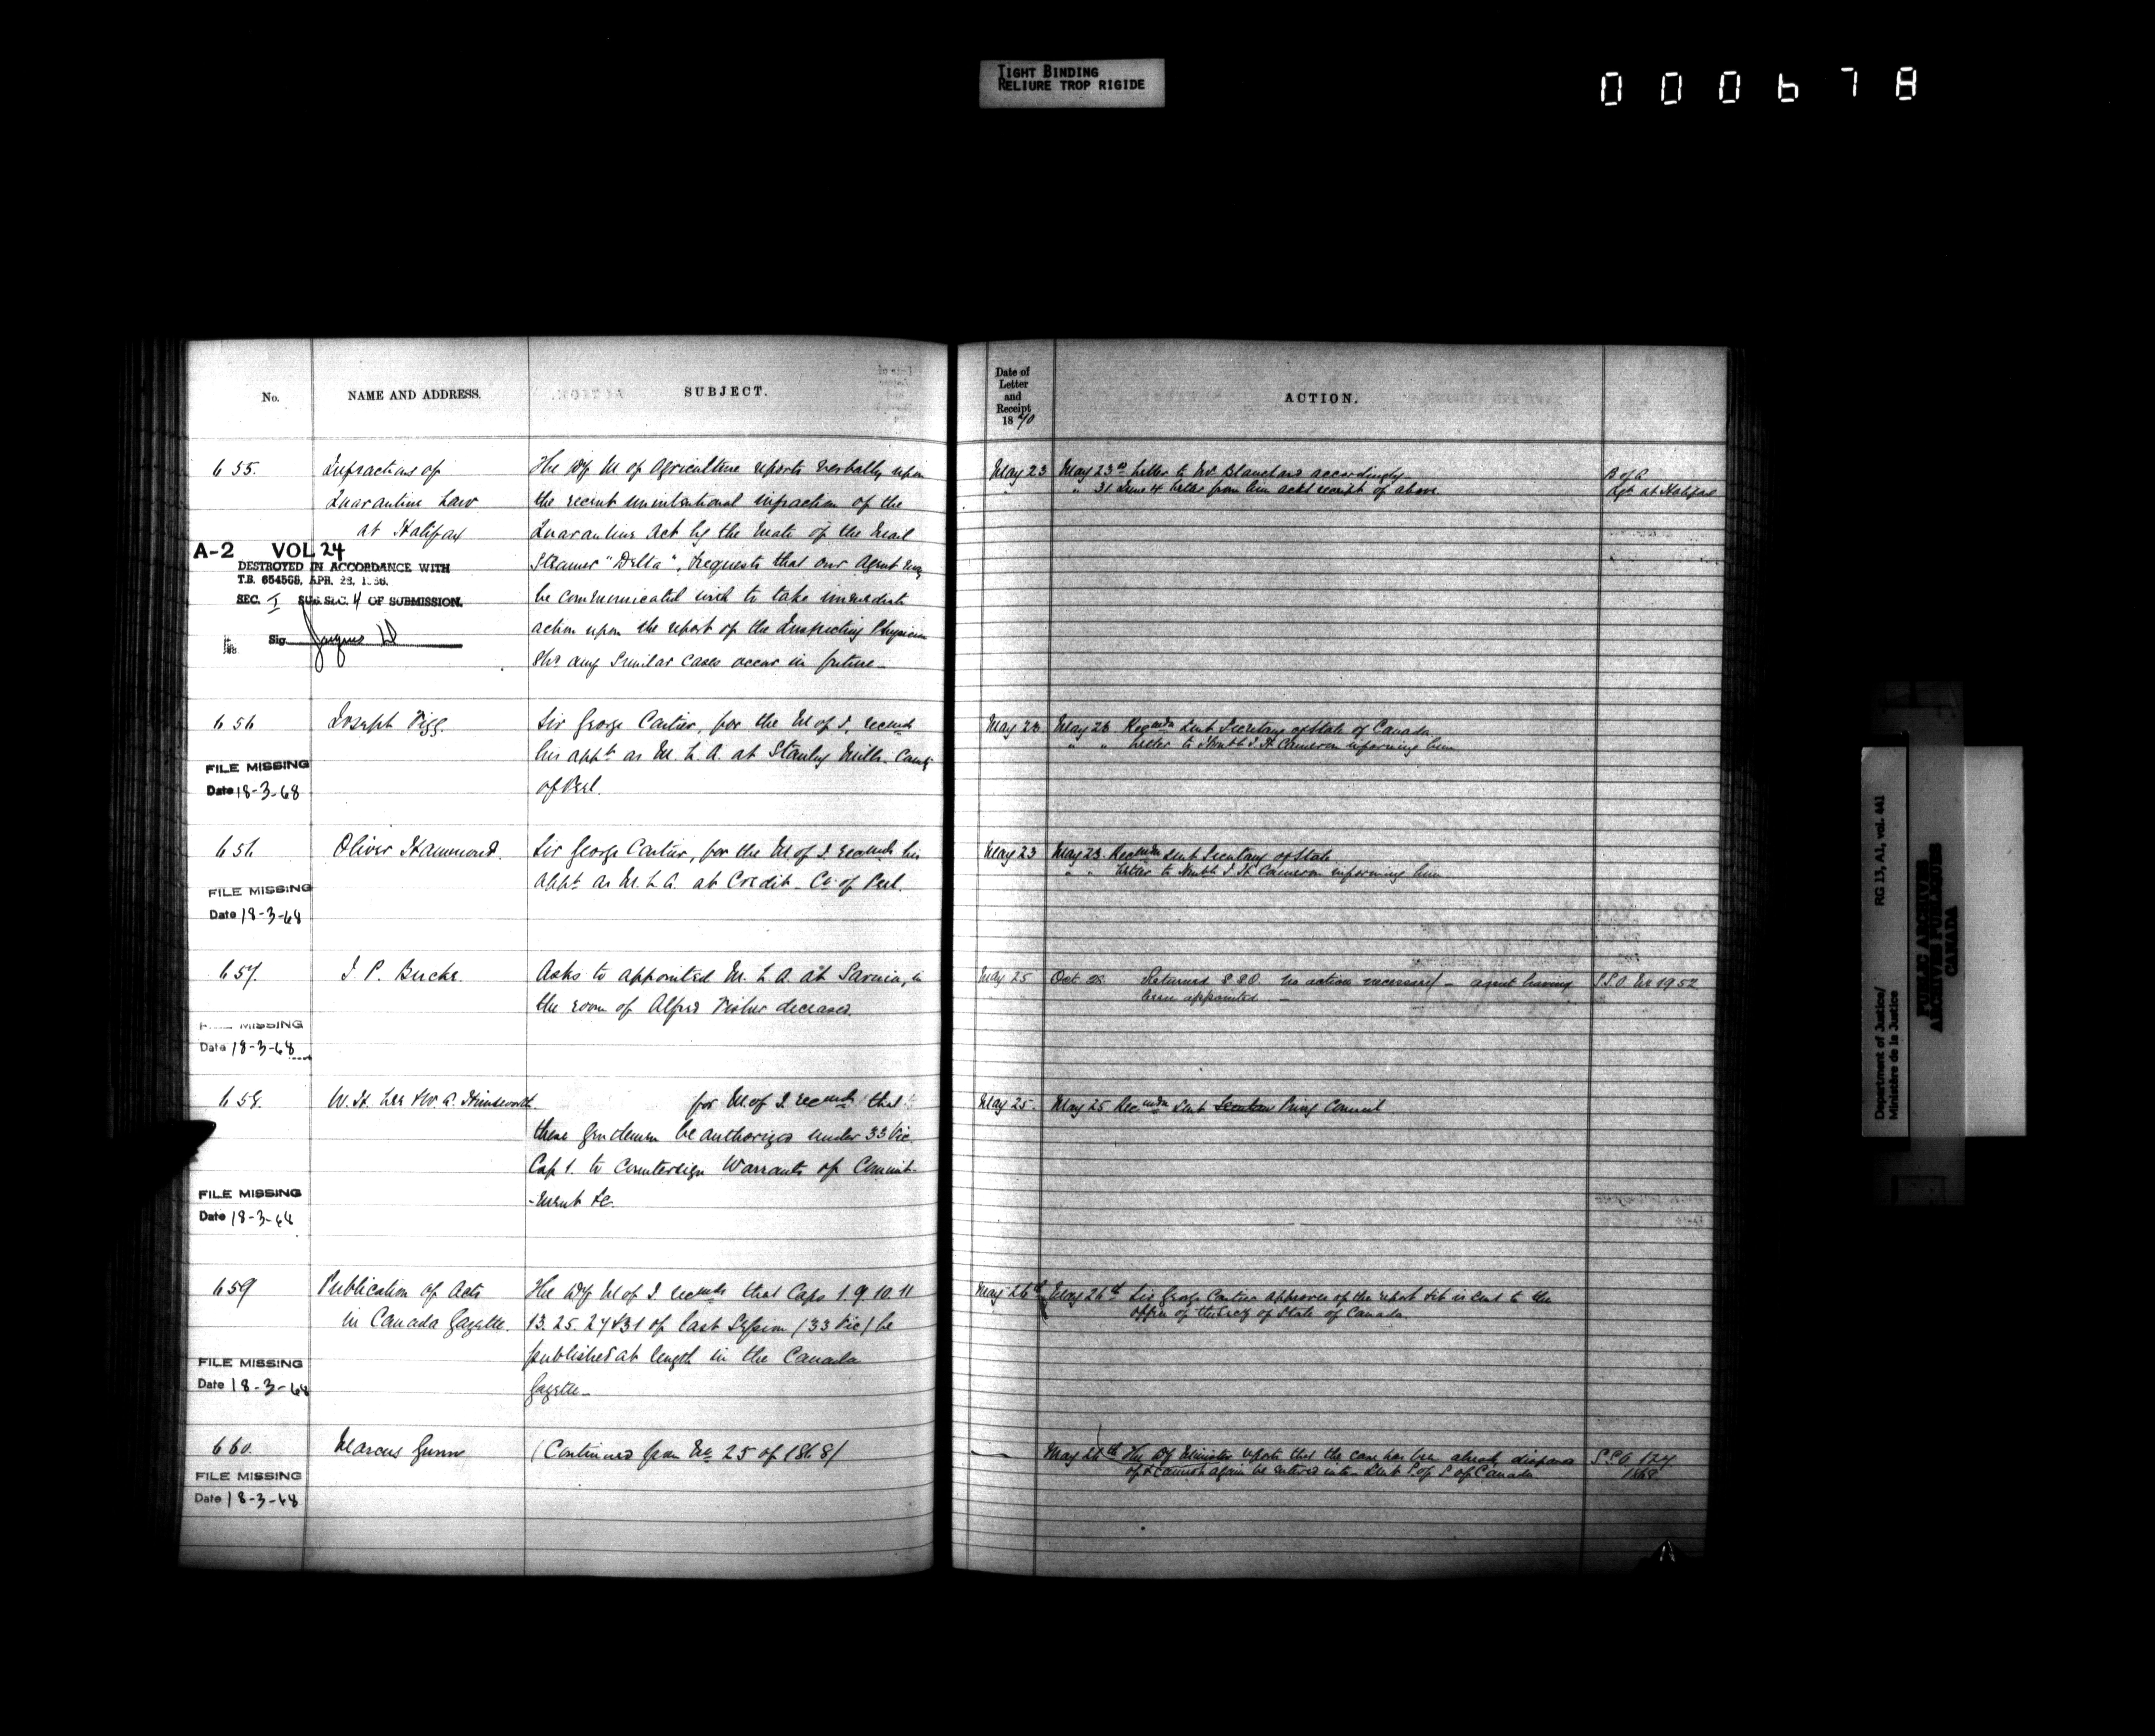 TIGHT BINDING
RELIURE TROP RIGIDE
000678
No.
NAME AND ADDRESS.
SUBJECT.
655.
Infractions of
Quarantine Law
at Halifax
The Dy M of Agriculture reports verbally upon
the recent unintentional infraction of the
Quarantine Act by the Mate of the Mail
Steamer "Delta", requests that our Agent may
be communicated with to take immediate
action upon the report of the Inspecting Physician
shd any similar cases occur in future—
A-2 VOL 24
DESTROYED IN ACCORDANCE WITH
T.B. 654568, APR. 28, 1966.
SEC. I SUB. SEC. 4 OF SUBMISSION.
Sig.
656
Joseph Figg.
Sir George Cartier, for the M of J, recmds
his appt as M. L. A. at Stanley Mills. County
of Peel.
FILE MISSING
Date 18-3-68
656
Oliver Hammond.
Sir George Cartier, for the M of J. recmds his
appt as M. L. A. at Credit. Co. of Peel.
FILE MISSING
Date 18-3-68
657.
J. P. Bucke.
Asks to appointed M. L. A. at Sarnia, in
the room of Alfred Fisher deceased.
FILE MISSING
Date 18-3-68
658.
W. H. Lee & W. A. Himsworth.
for M. of J. recmds that
these gentlemen be authorized under 33 Vic.
Cap 1. to countersign Warrants of Commit-
-ment &c.
FILE MISSING
Date 18-3-68
659
Publication of Acts
in Canada Gazette.
The Dy M of J recmds that Caps 1. 9. 10. 11
13. 25. 27 & 31 of last Session (33 Vic) be
published at length in the Canada
Gazette—
FILE MISSING
Date 18-3-68
660.
Marcus Gunn
(Continued from No 25 of 1868)
FILE MISSING
Date 18-3-68
Date of
Letter
and
Receipt
1870
ACTION.
May 23
May 23rd Letter to Mr Blanchard accordingly—
" 31 June 4 Letter from him ackg receipt of above
B of A
Agt at Halifax
May 23
May 23 Recmdn sent Secretary of State of Canada
" " Letter to Honble J. H. Cameron informing him
May 23
May 23. Recmdn sent Secretary of State
" " Letter to Honble J H Cameron informing him
May 25
Oct 28 Returned S S O. no action necessary — agent having
been appointed —
S.S.O. No 1952
May 25.
May 25 Recmdn sent Privy Council
May 26th
May 26th Sir George Cartier approves of the report & it is sent to the
office of the Secy of State of Canada.
May 26th The Dy Minister reports that the case has been already disposed
of & cannot again be entered into— Sent S. of S of Canada
S.S.O. 124
1868
Department of Justice/
Ministère de la Justice
RG 13, A1, vol. 441
PUBLIC ARCHIVES
ARCHIVES PUBLIQUES
CANADA